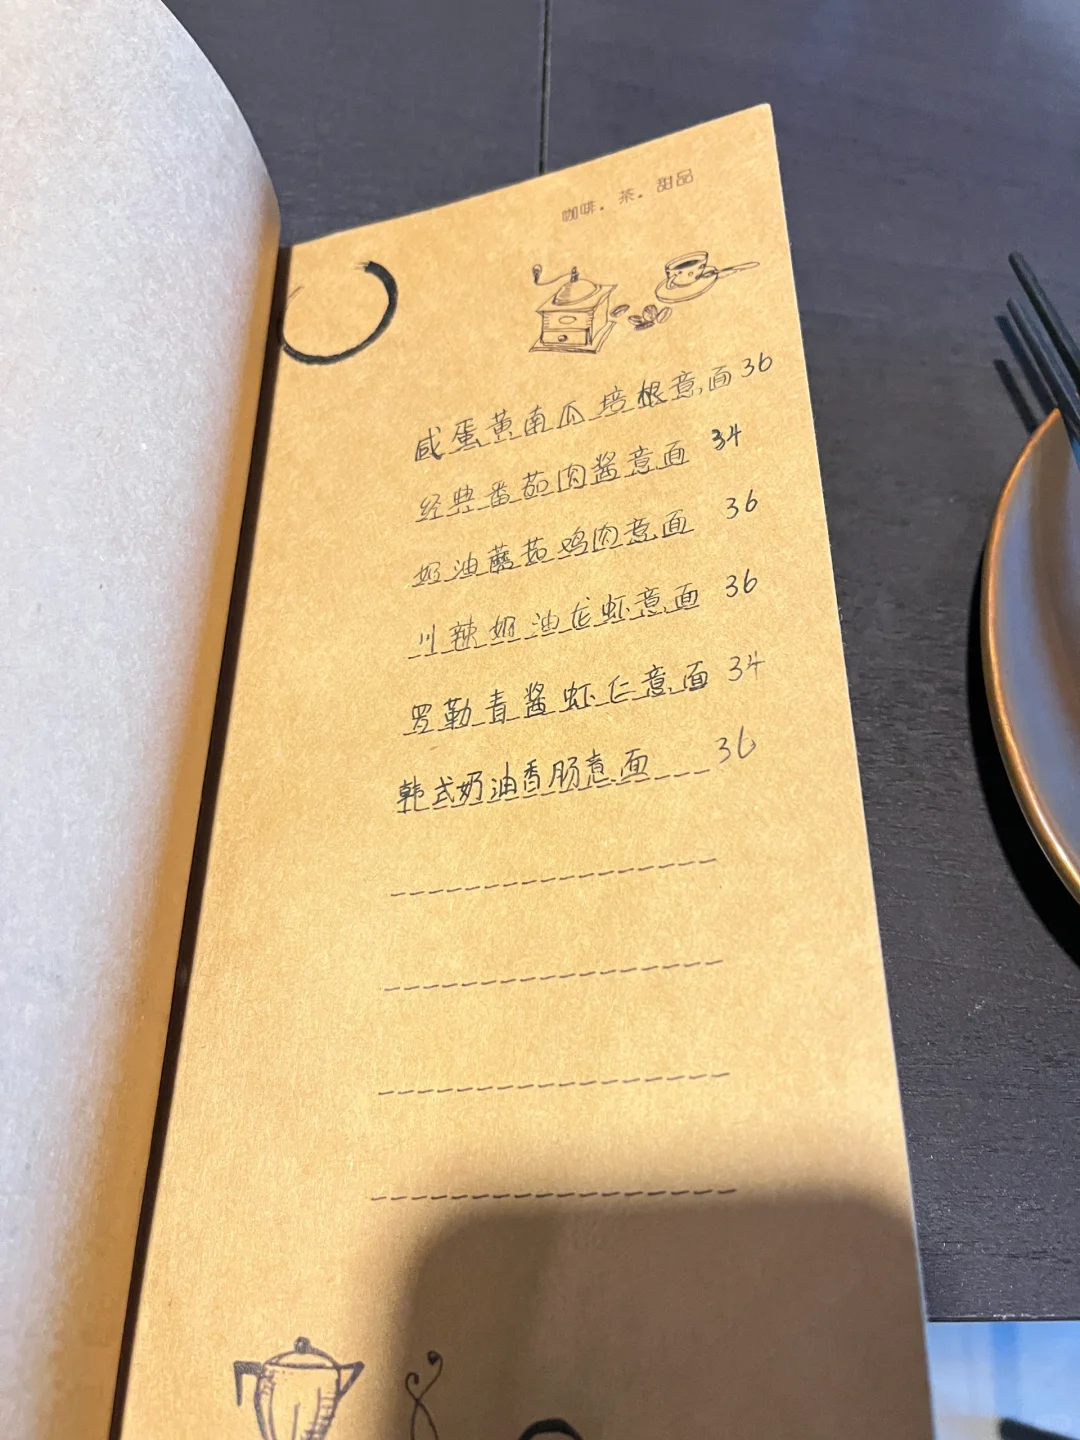 咖啡.茶.甜品
咸蛋黄南瓜培根意面36
经典番茄肉酱意面 34
奶油蘑菇鸡肉意面 36
川辣奶油龙虾意面 36
罗勒青酱虾仁意面 34
韩式奶油香肠意面 36